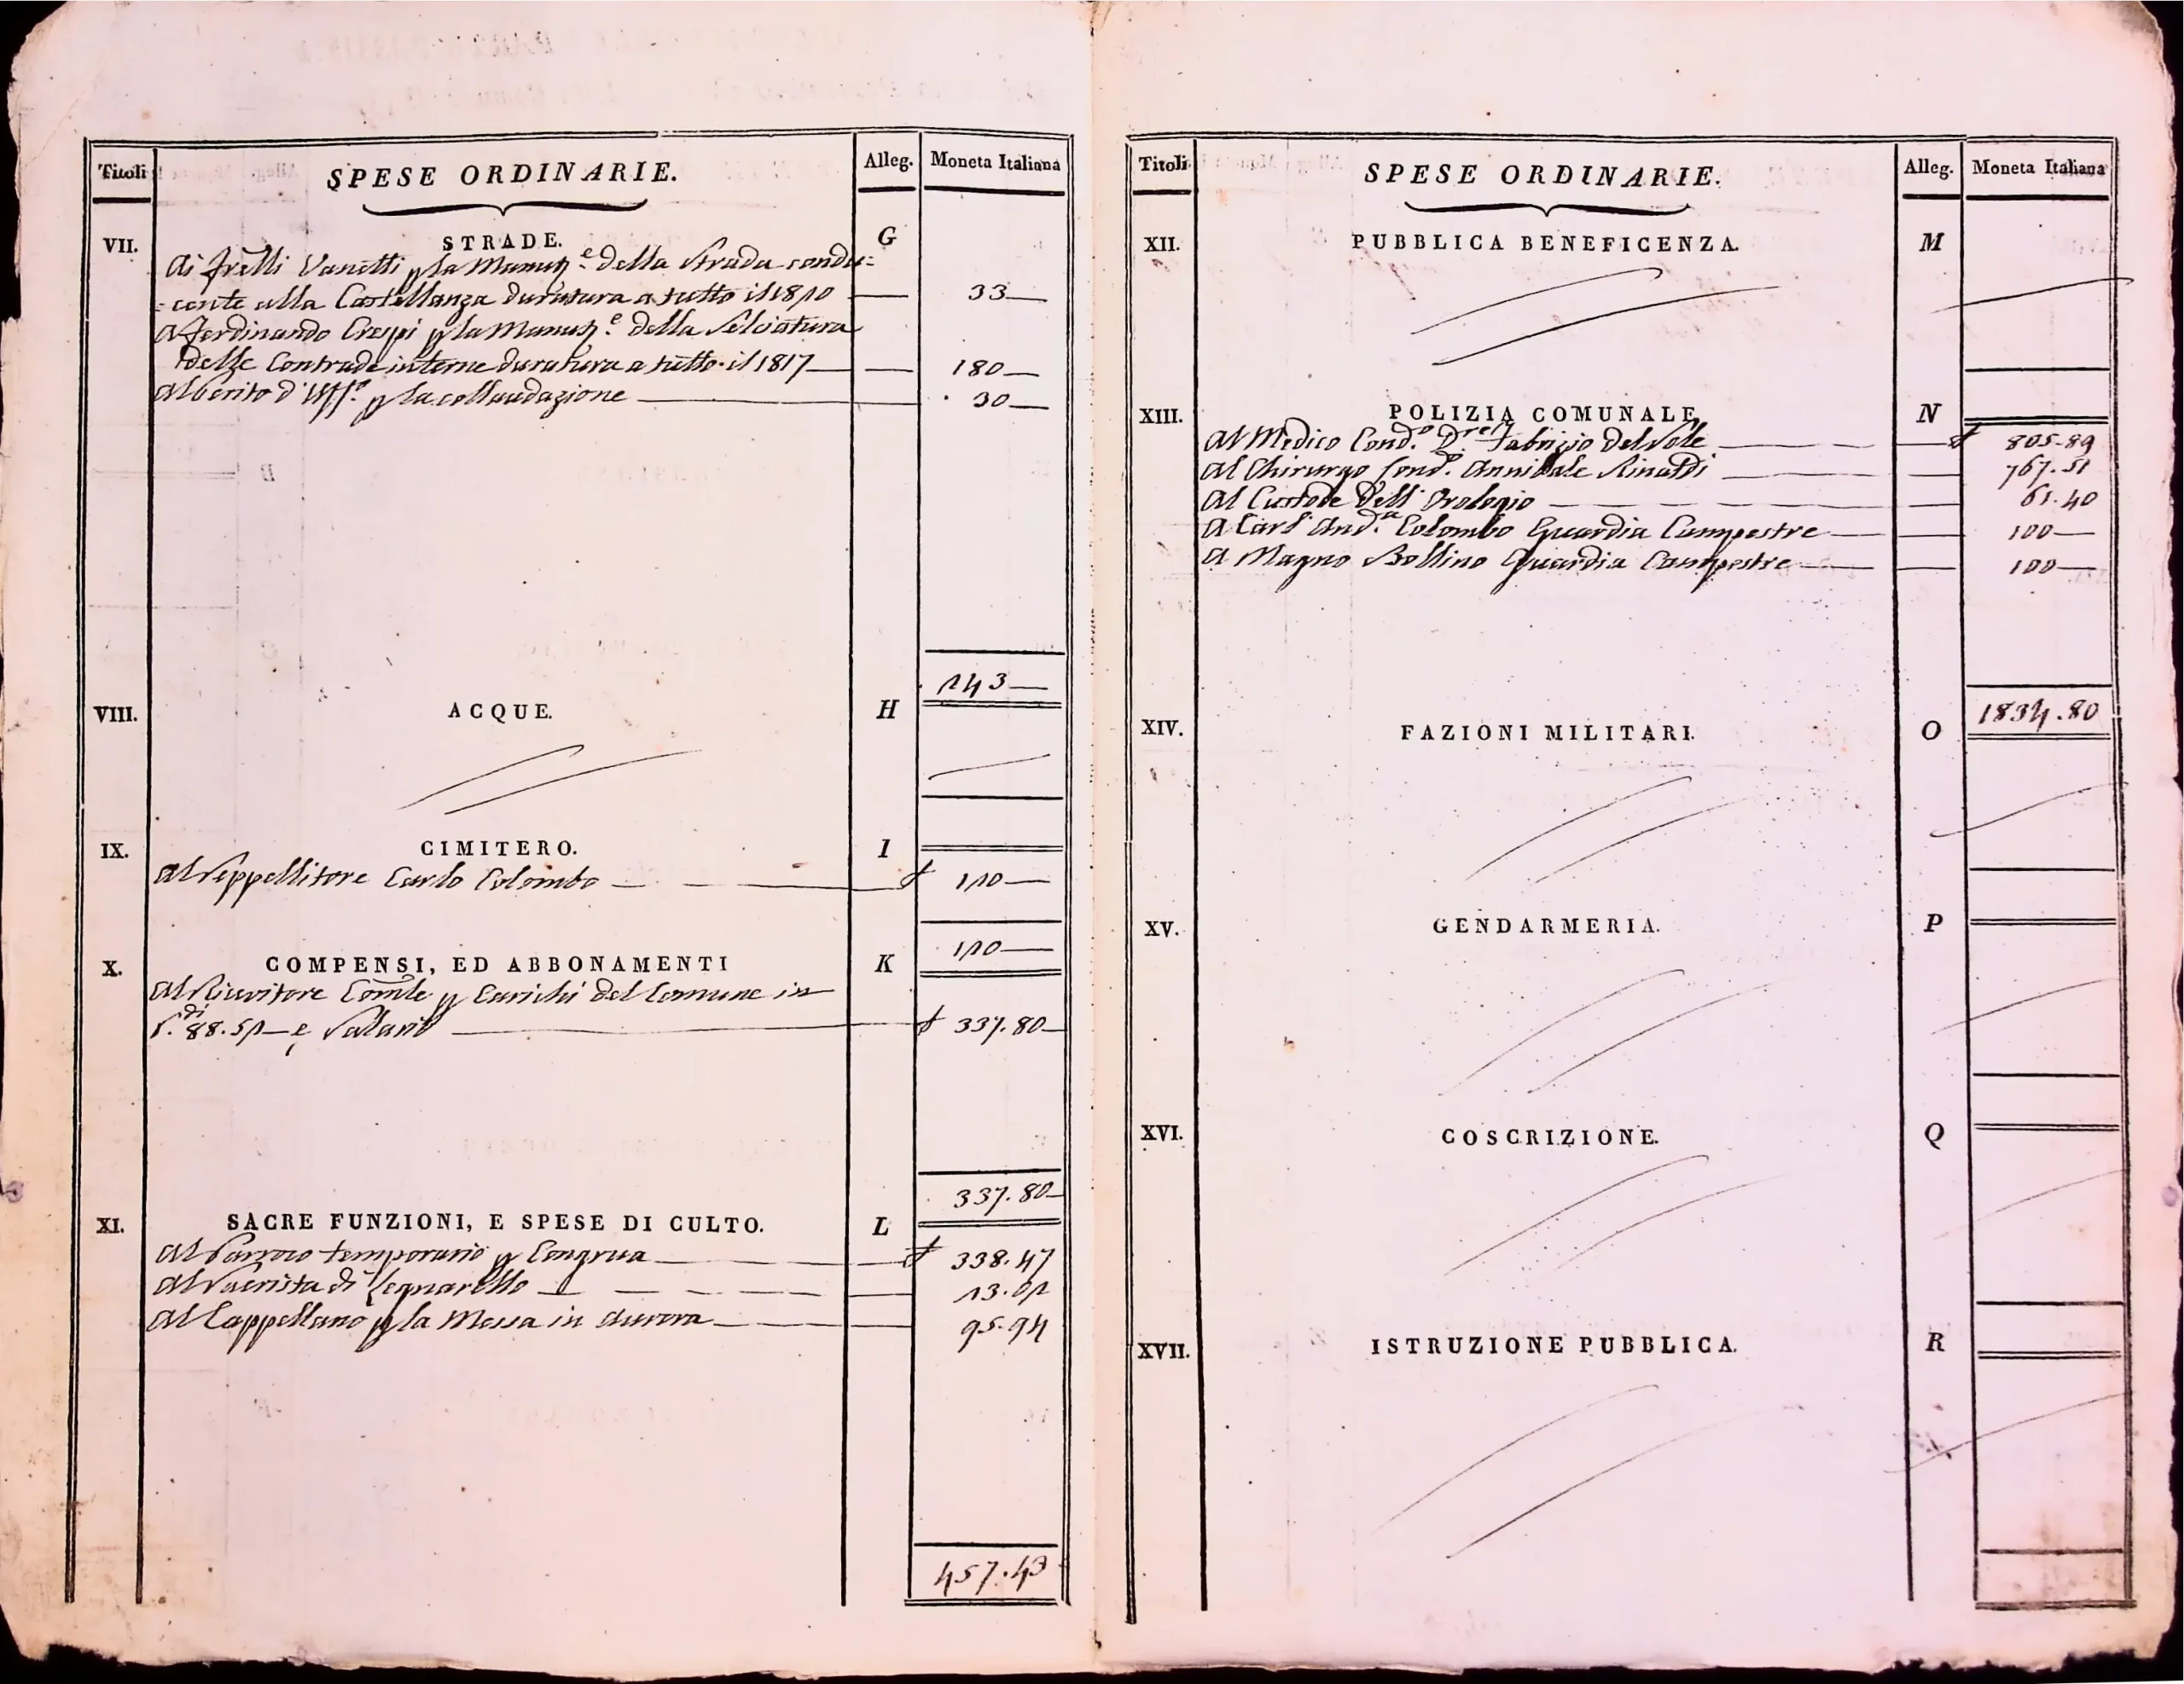 Titoli
SPESE ORDINARIE.
Alleg.
Moneta Italiana
VII.
STRADE.
G
Ai frelli Vanetti p la Manutz.e della Strada condu=
=cente alla Castellanza duratura a tutto il 1810 — 33—
A Ferdinando Crespi p la Manutz.e della Selciatura
delle Contrade interne duratura a tutto il 1817 — 180—
Al Perito d'Uff.o p la collaudazione — 30—
243—
VIII.
ACQUE.
H
IX.
CIMITERO.
I
Al Seppellitore Carlo Colombo — 110—
110—
X.
COMPENSI, ED ABBONAMENTI
K
Al Ricevitore Comle p Carichi del Comune in
di
88.51— e Salario — 337.80—
337.80—
XI.
SACRE FUNZIONI, E SPESE DI CULTO.
L
Al Parroco temporario p Congrua — 338.47
Al Sacrista di Legnarello — 13.01
Al Cappellano p la Messa in Aurora — 95.94
457.43
Titoli
SPESE ORDINARIE.
Alleg.
Moneta Italiana
XII.
PUBBLICA BENEFICENZA.
M
XIII.
POLIZIA COMUNALE
N
Al Medico Cond.o D.re Fabrizio Delsole — 805.89
Al Chirurgo Cond.o Annibale Rinaldi — 767.51
Al Custode dell'Orologio — 61.40
A Carl'And.a Colombo Guardia Campestre — 100—
A Magno Bollino Guardia Campestre — 100—
1834.80
XIV.
FAZIONI MILITARI.
O
XV.
GENDARMERIA.
P
XVI.
COSCRIZIONE.
Q
XVII.
ISTRUZIONE PUBBLICA.
R